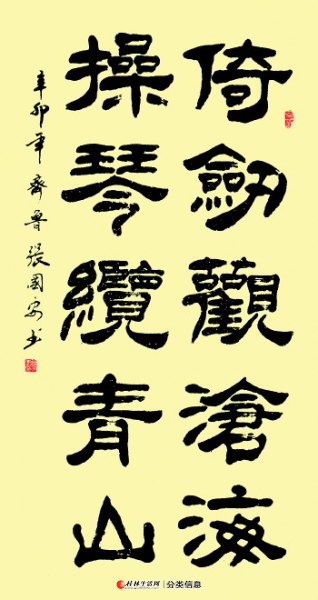 倚劒觀滄海
操琴纜青山
辛卯年齊魯張國安书
桂林生活网 分类信息